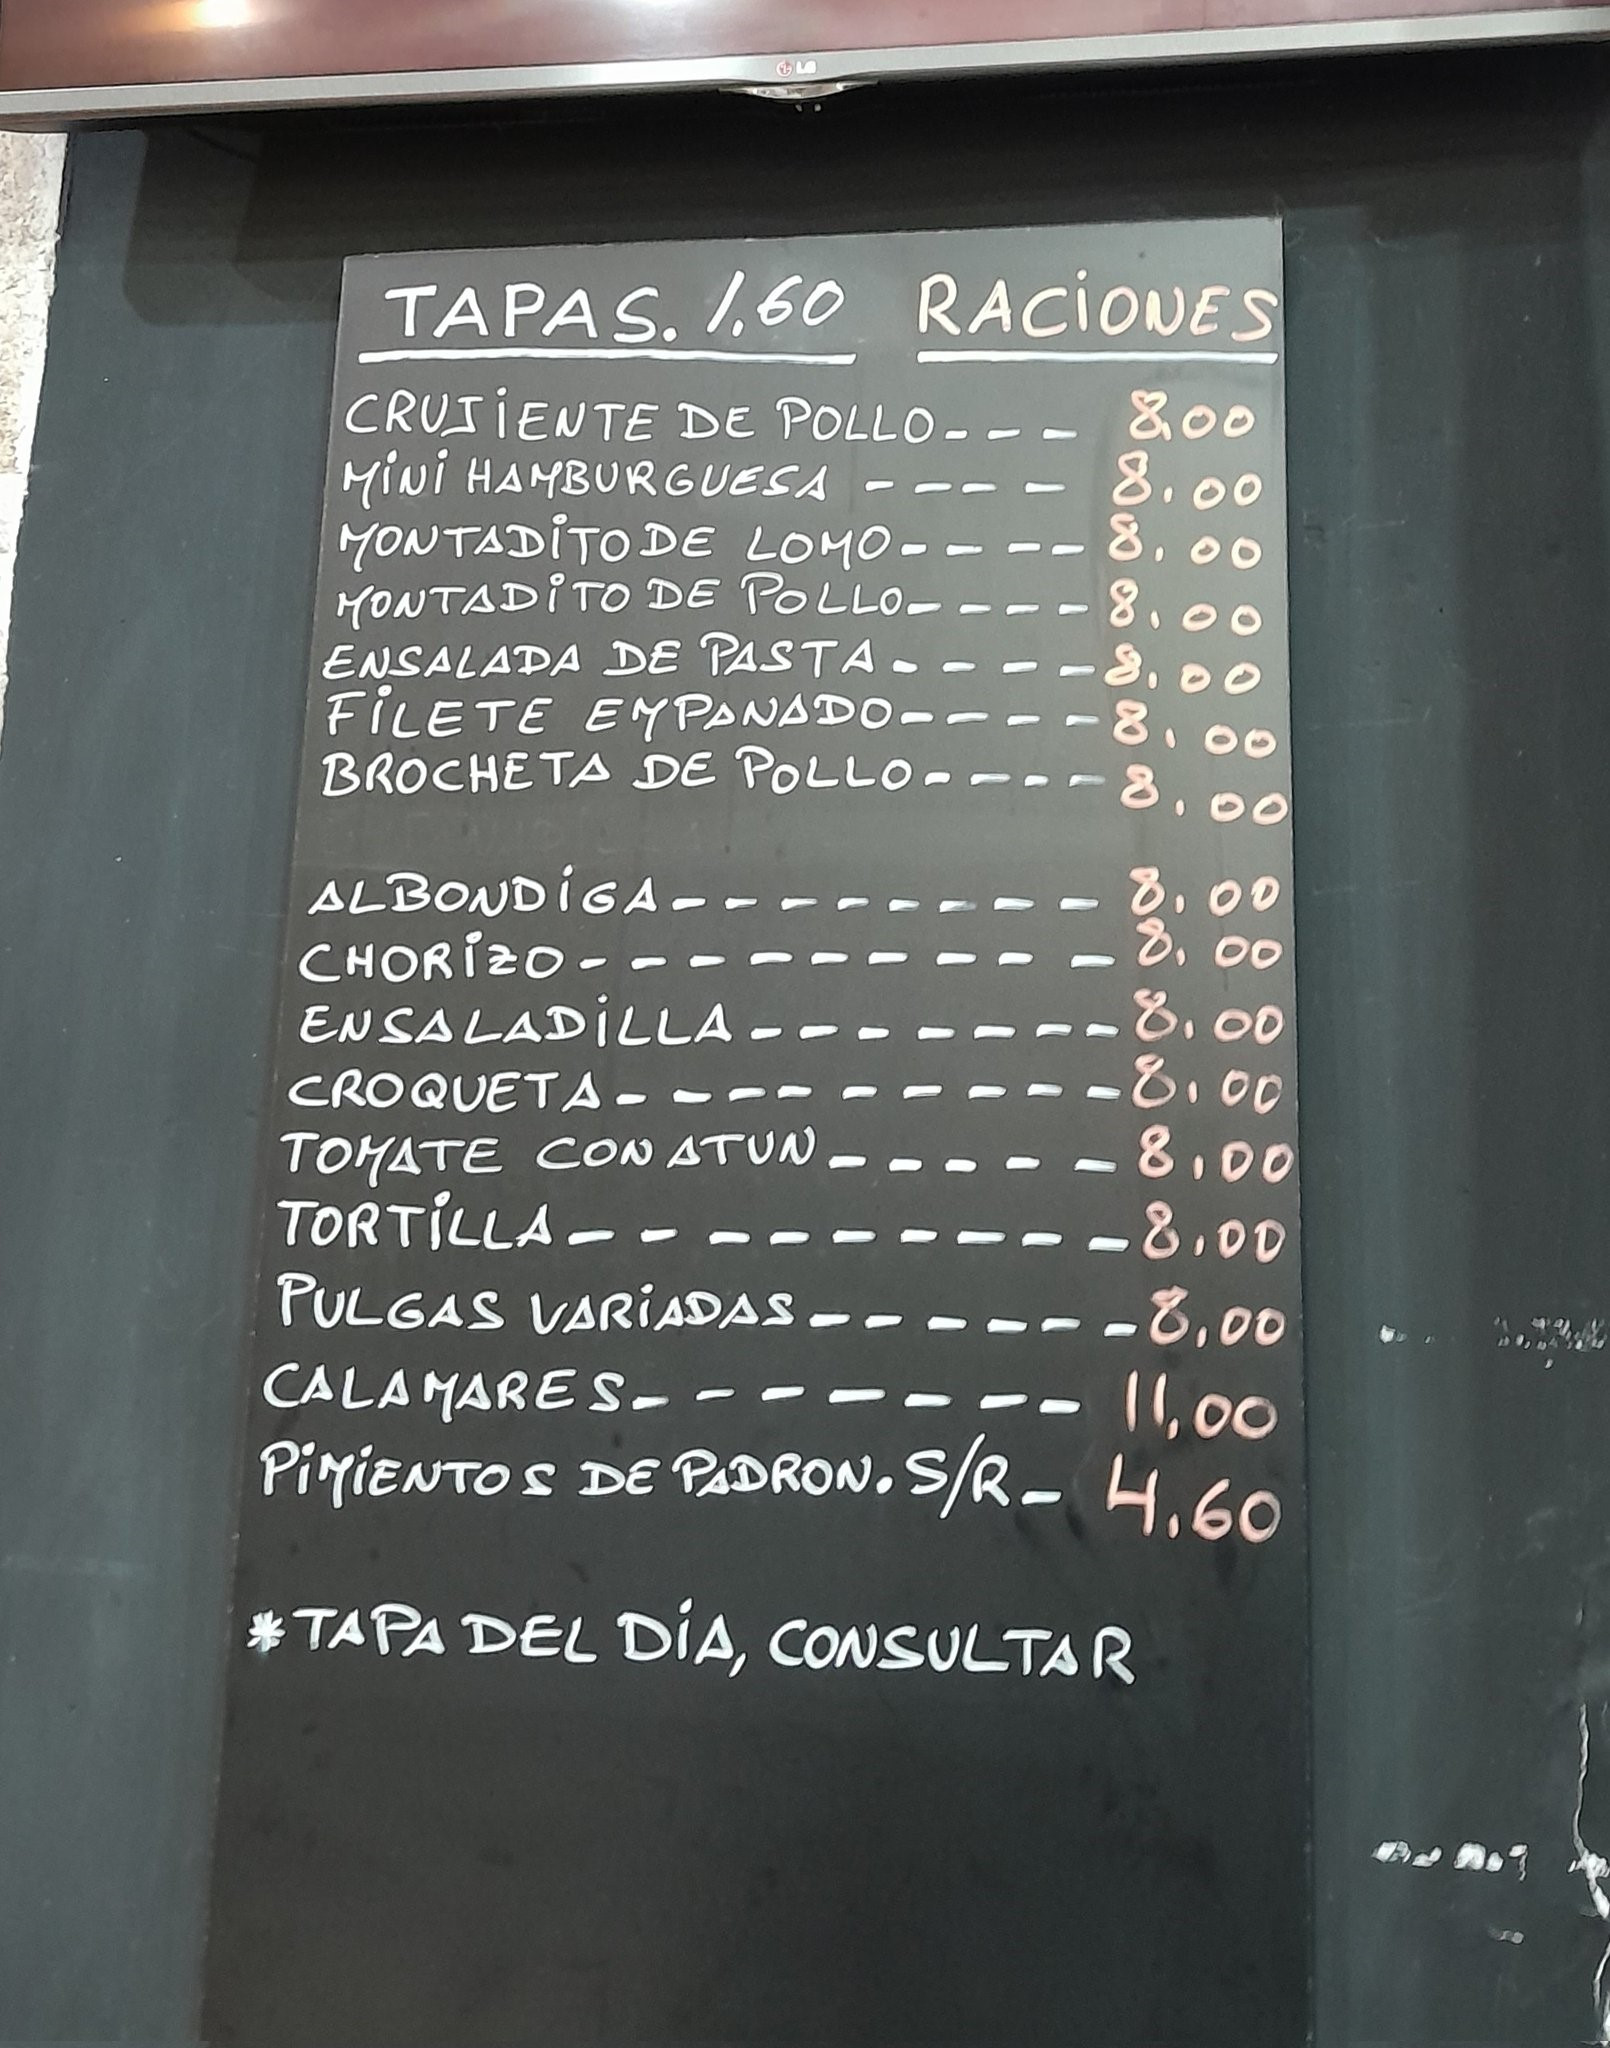 LG
TAPAS. 1,60 RACIONES
CRUJIENTE DE POLLO--- 8,00
MINI HAMBURGUESA ---- 8,00
MONTADITO DE LOMO---- 8,00
MONTADITO DE POLLO---- 8,00
ENSALADA DE PASTA---- 8,00
FILETE EMPANADO---- 8,00
BROCHETA DE POLLO---- 8,00
ALBONDIGA-------- 8,00
CHORIZO--------- 8,00
ENSALADILLA------- 8,00
CROQUETA--------- 8,00
TOMATE CON ATUN----- 8,00
TORTILLA--------- 8,00
PULGAS VARIADAS------ 8,00
CALAMARES------- 11,00
PIMIENTOS DE PADRON. S/R- 4,60
*TAPA DEL DÍA, CONSULTAR